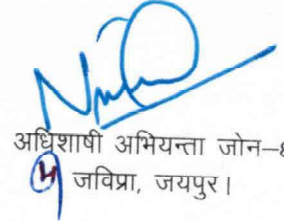 अधिशाषी अभियन्ता जोन–
जविप्रा, जयपुर।